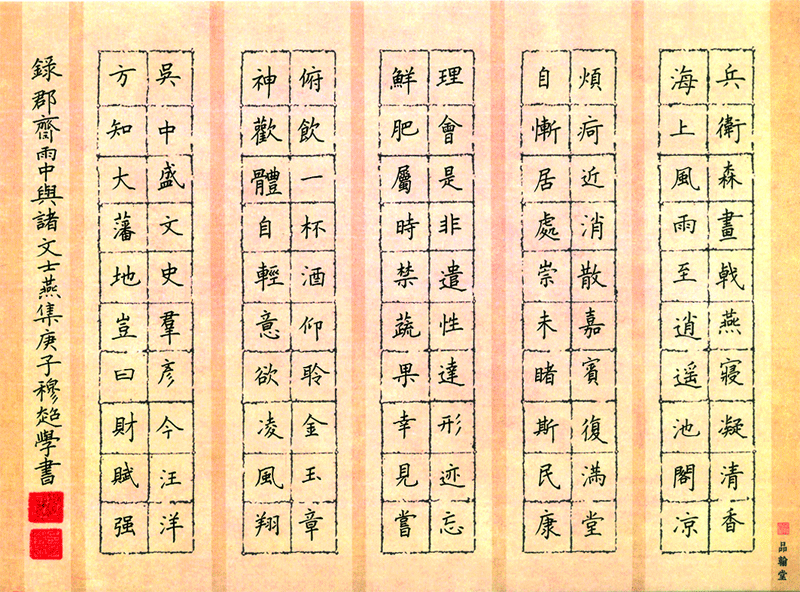 兵衛森畫戟燕寢凝清香
海上風雨至逍遥池閣凉
煩疴近消散嘉賓復滿堂
自慚居處崇未睹斯民康
理會是非遣性達形迹忘
鮮肥屬時禁蔬果幸見嘗
俯飲一杯酒仰聆金玉章
神歡體自輕意欲凌風翔
吳中盛文史羣彦今汪洋
方知大藩地豈曰財賦强
錄郡齋雨中與諸文士燕集庚子穆超學書
品翰堂